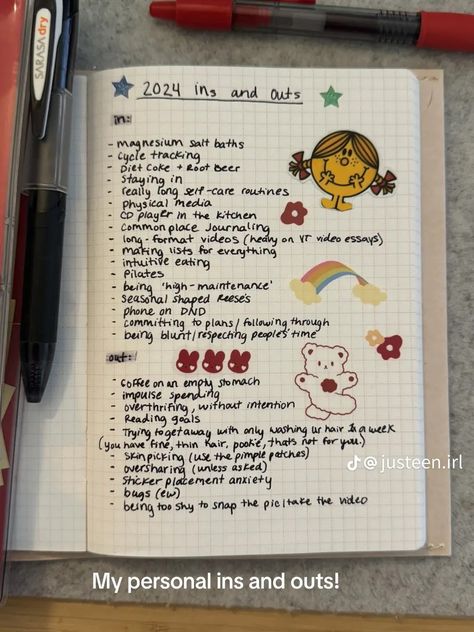 SARASA dry
2024 ins and outs
in:
- magnesium salt baths
- cycle tracking
- Diet Coke + Root Beer
- Staying in
- really long self-care routines
- physical media
- CD player in the kitchen
- Common place Journaling
- long-format videos (heavy on YT video essays)
- making lists for everything
- intuitive eating
- Pilates
- being 'high-maintenance'
- Seasonal shaped Reese's
- phone on DND
- committing to plans/following through
- being blunt/respecting people's time
out:
- Coffee on an empty stomach
- impulse spending
- overthrifing, without intention
- Reading goals
- Trying to get away with only washing ur hair 1x a week
(you have fine, thin hair, pookie, thats not for you.)
- Skin picking (use the pimple patches)
- oversharing (unless asked)
- Sticker placement anxiety
- bugs (ew)
- being too shy to snap the pic/take the video
@justeen.irl
My personal ins and outs!